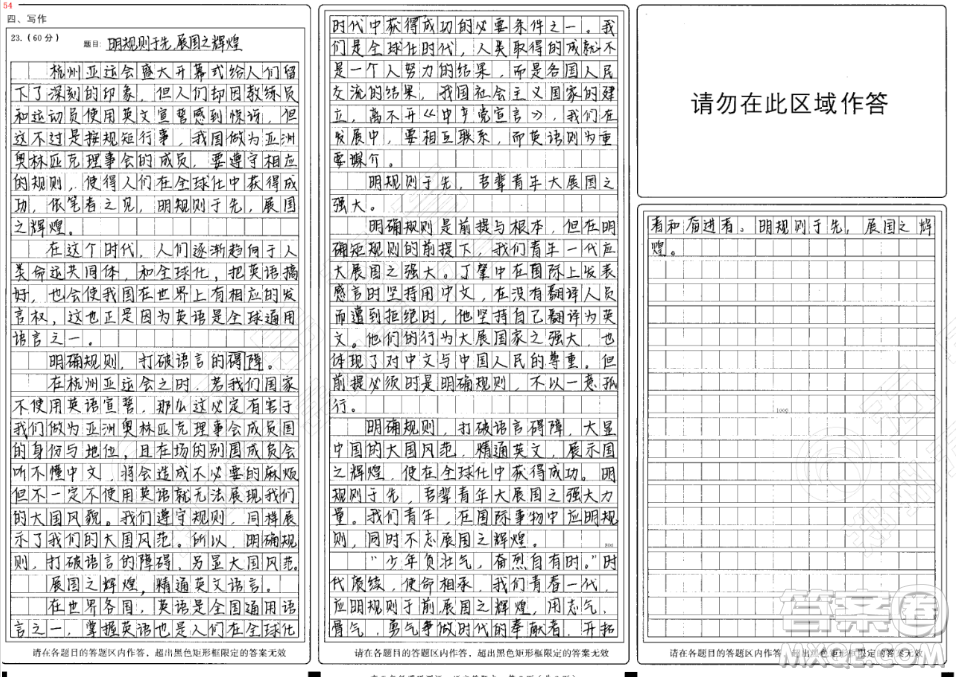 54
四、写作
23.（60分）
题目：明规则于先，展国之辉煌
杭州亚运会盛大开幕式给人们留
下了深刻的印象，但人们却因教练员
和运动员使用英文宣誓感到惊讶，但
这不过是按规矩行事，我国做为亚洲
奥林匹克理事会的成员，要遵守相应
的规则，使得人们在全球化中获得成
功，依笔者之见，明规则于先，展国
之辉煌。
在这个时代，人们逐渐趋向于人
类命运共同体，和全球化，把英语搞
好，也会使我国在世界上有相应的发
言权，这也正是因为英语是全球通用
语言之一。
明确规则，打破语言的碍障。
在杭州亚运会之时，若我们国家
不使用英语宣誓，那么这必定有害于
我们做为亚洲奥林匹克理事会成员国
的身份与地位，且在场的别国成员会
听不懂中文，将会造成不必要的麻烦
但不一定不使用英语就无法展现我们
的大国风貌。我们遵守规则，同样展
示了我们的大国风范。所以，明确规
则，打破语言的障碍，另显大国风范。
展国之辉煌，精通英文语言。
在世界各国，英语是全国通用语
言之一，掌握英语也是人们在全球化
请在各题目的答题区内作答，超出黑色矩形框限定的答案无效
时代中获得成功的必要条件之一。我
们是全球化时代，人类取得的成就不
是一个人努力的结果，而是各国人民
交流的结果，我国社会主义国家的建
立，离不开《中产党宣言》，我们在
发展中，要相互联系，而英语则为重
要媒介。
明规则于先，吾辈青年大展国之
强大。
明确规则是前提与根本，但在明
确规则的前提下，我们青年一代应
大展国之强大。丁肇中在国际上发表
感言时坚持用中文，在没有翻译人员
而遭到拒绝时，他坚持自己翻译为英
文。他们的行为大展国家之强大，也
体现了对中文与中国人民的尊重。但
前提必须时是明确规则，不以一意孤
行。
明确规则，打破语言碍障，大显
中国的大国风范，精通英文，展示国
之辉煌，使在全球化中获得成功。明
规则于先，吾辈青年大展国之强大力
量。我们青年，在国际事物中应明规
则，同时不忘展国之辉煌。
“少年负壮气，奋烈自有时。”时
代赓续，使命相承，我们青春一代，
应明规则于前展国之辉煌，用志气，
骨气，勇气争做时代的奉献者，开拓
请在各题目的答题区内作答，超出黑色矩形框限定的答案无效
请勿在此区域作答
者和奋进者。明规则于先，展国之辉
煌。
1000
答案圈
请在各题目的答题区内作答，超出黑色矩形框限定的答案无效